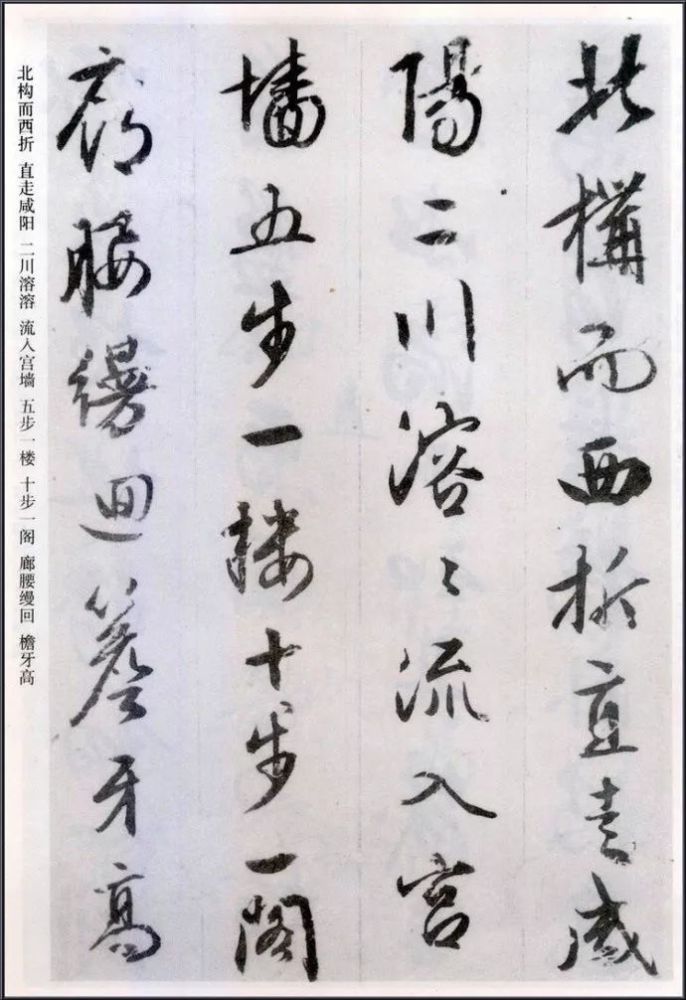 北構而西折直走咸
陽二川溶〻流入宮
墻五步一樓十步一閣
廊腰縵迴簷牙高
北构而西折 直走咸阳 二川溶溶 流入宫墙 五步一楼 十步一阁 廊腰缦回 檐牙高